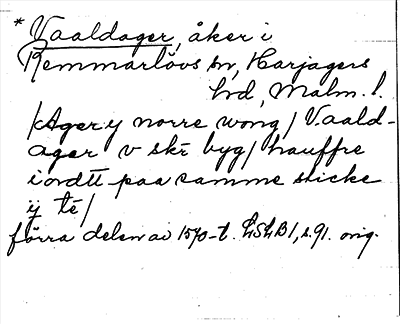 * Vaaldager, åker i
Remmarlövs sn, Harjagers
hd, Malm. l.
/Ager y norre wong/ Vaald-
ager v skr byg/ hauffre
iordtt paa samme sticke
ij te/
förra delen av 1570-t. LSLB1, s. 91. orig.